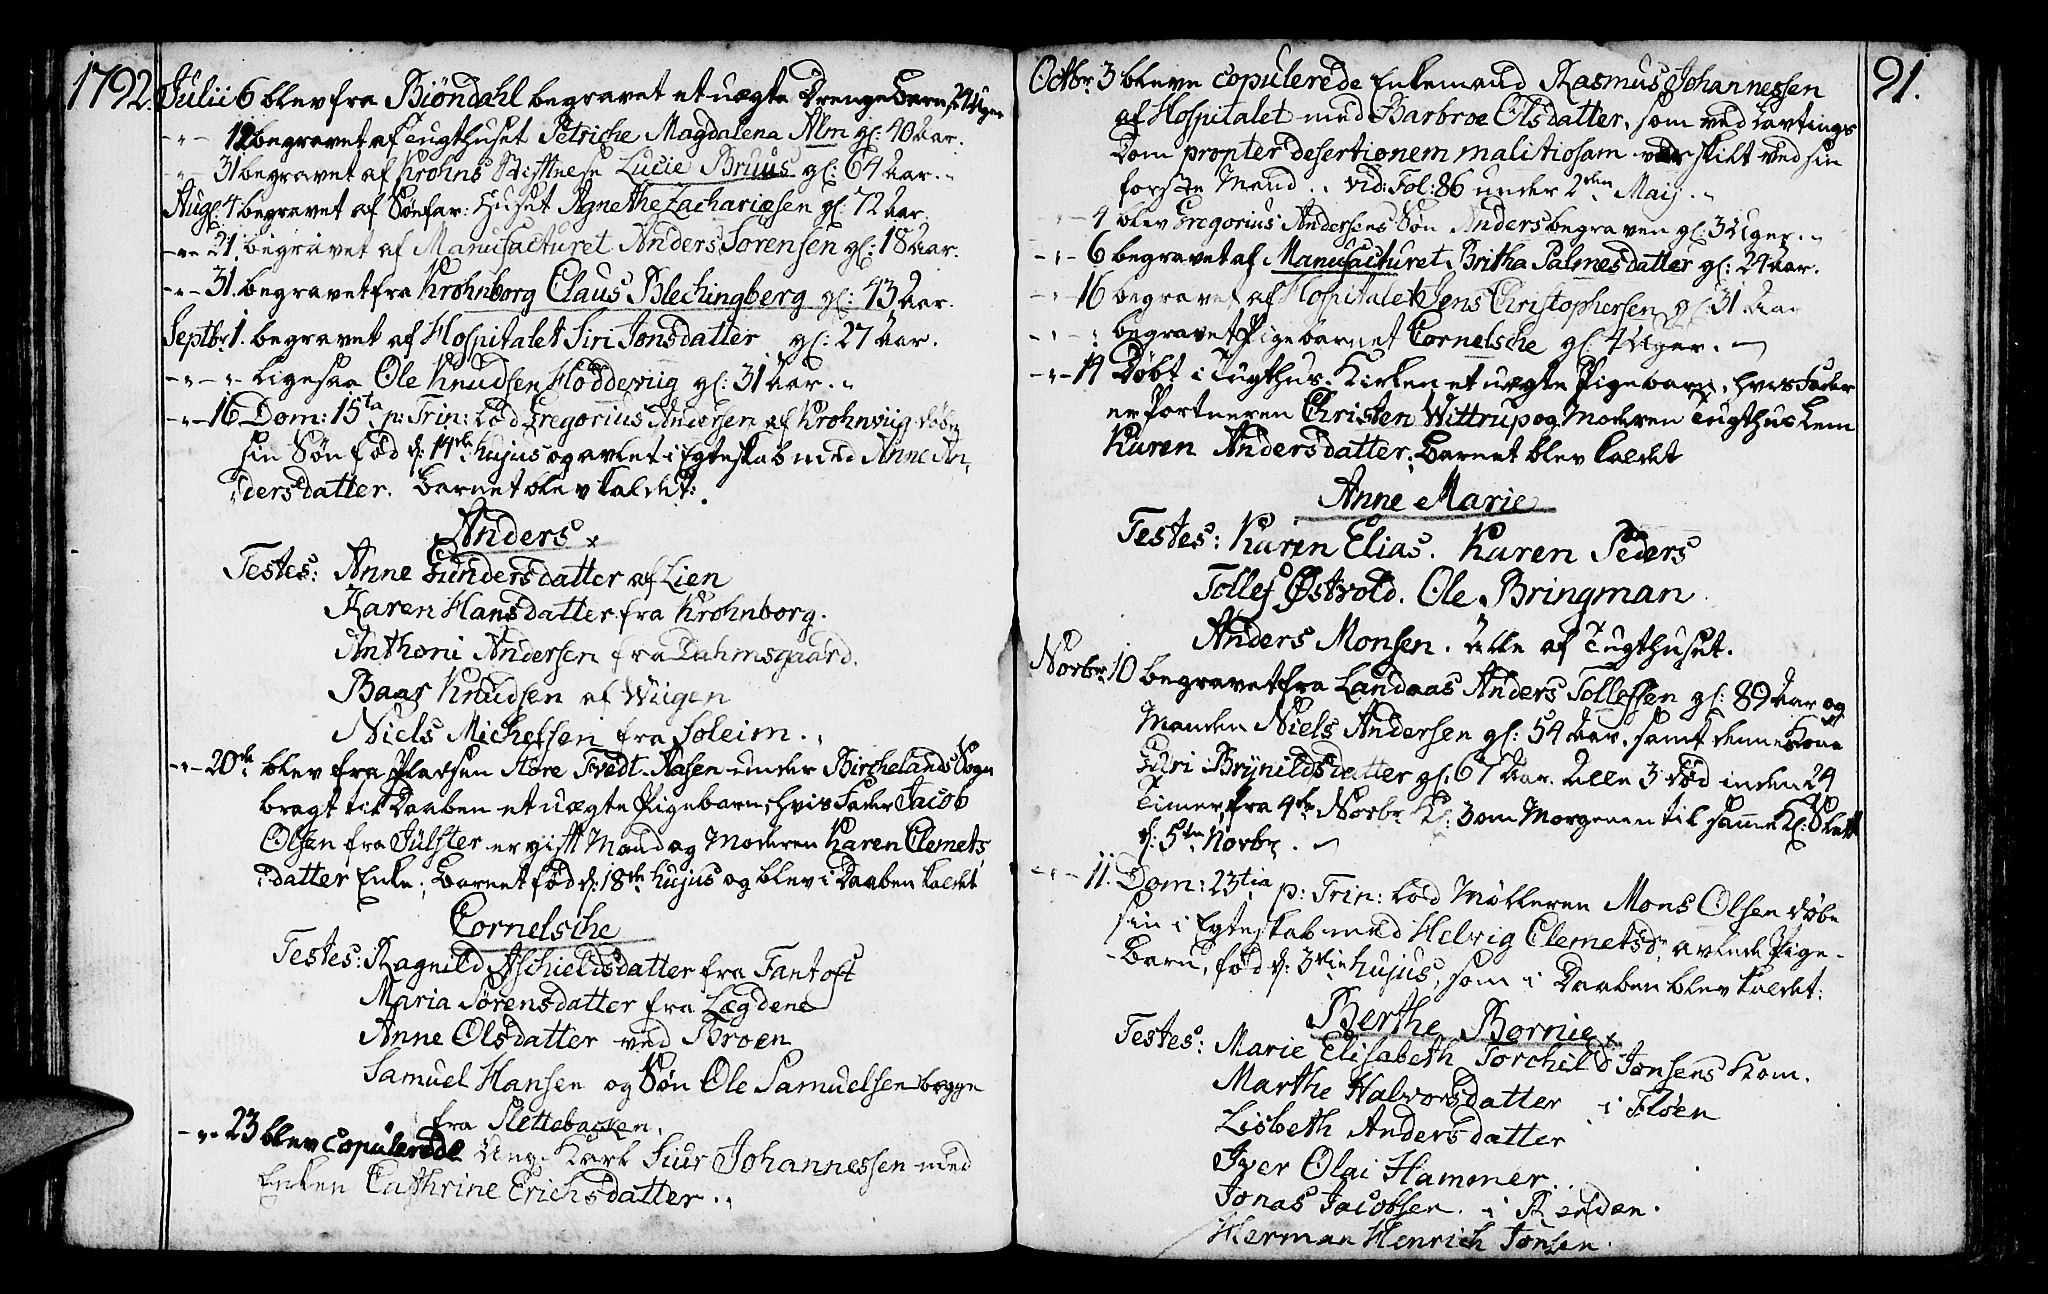 1792.
Julii 6 blev fra Biöndahl begravet et uægte Drengebarn, 24 Uger
- " - 12 begravet af Tugthuset Petriche Magdalena Alm gl: 40 Aar.
- " - 31 begravet af Krohns Lucie Bruus gl: 64 Aar. "
Aug: 4 begravet af Söefar: Huset Agnethe Zachariæsen gl: 72 Aar.
- " - 21. begravet af Manufacturet Anders Sörensen gl: 18 Aar.
- " - 31. begravet fra Krohnborg Claus Blechingberg gl: 43 Aar.
Septbr 1. begravet af Hospitalet Siri Jonsdatter gl: 27 Aar.
- " - " - ligesaa Ole Knudsen Floddervig gl: 31 Aar. "
- " - 16 Dom: 15ta p: Trin: lod Gregorius Andersen af Krohnviig döbe
sin Sön föd d: 14de hujus og avlet i Egteskab med Anne An-
dersdatter. Barnet blev kaldet:
Anders x
Testes: Anne Gundersdatter af Lien
Karen Hansdatter fra Krohnborg.
Anthoni Andersen fra Dahmsgaard.
Baar Knudsen af Wiigen
Niels Michelsen fra Soleim. "
- " - 20de blev fra Pladsen Store Tvedt-Aasen under Birchelands Sogn
bragt til Daaben et uægte Pigebarn, hvis Fader Jacob
Olsen fra Jülster er gift Mand og Moderen Karen Clemets
datter Enke; Barnet föd d: 18de hujus og blev i Daaben kaldet
Cornelsche
Testes: Ragnild Aschieldsdatter fra Fantoft
Maria Sörensdatter fra Lægdene
Anne Olsdatter ved Broen
Samuel Hansen og Sön Ole Samuelsen begge
fra Slettebacken.
- " - 23 blev copulerede Ung-Karl Siur Johannessen med
Enken Cathrine Erichsdatter. "
91.
Octbr 3 bleve copulerede Enkemand Rasmus Johannessen
af Hospitalet med Barbroe Olsdatter, som ved Lavtings
Dom propter desertionem malitiosam var skilt ved sin
forste Mand. vid: Fol: 86 under 2den Maij. "
- " - 4 blev Gregorius Andersens Sön Anders begraven gl: 3 Uger. "
- " - 6 begravet af Manufacturet Britha Palmesdatter gl: 24 Aar.
- " - 16 begravet af Hospitalet Jens Christophersen gl: 31 Aar
- " - : begravet Pigebarnet Cornelsche gl: 4 Uger.
- " - 14 Döbt i Tugthus-Kirken et uægte Pigebarn, hvis Fader
er Portneren Christen Wittrup og Moderen Tugthus Lem
Karen Andersdatter; Barnet blev kaldet
Anne Marie
Testes: Karen Elias. Karen Peders
Tollef Østvold. Ole Bringman
Anders Monsen. Alle af Tugthuset.
Novbr: 10 begravet fra Landaas Anders Tollefsen gl: 89 Aar og
Manden Niels Andersen gl: 54 Aar, samt dennes Kone
Guri Brÿnildsdatter gl: 67 Aar. Alle 3 död inden 24
Timer, fra 4de Novbr Kl: 3 om Morgenen til samme Kl: Slett
d: 5te Novbr.
- " - 11. Dom: 23tia p: Trin: lod Mölleren Mons Olsen döbe
sin i Egteskab med Helvig Clemetsdr avlede Pige-
Barn, föd d: 3die hujus, som i Daaben blev kaldet:
Berthe Bornie x
Testes: Marie Elisabeth Torchild Jonsens Kom.
Marthe Halvorsdatter i Flöen
Lisbeth Andersdatter
Iver Olai Hammer.
Jonas Jacobsen.
Herman Henrich Jonsen.